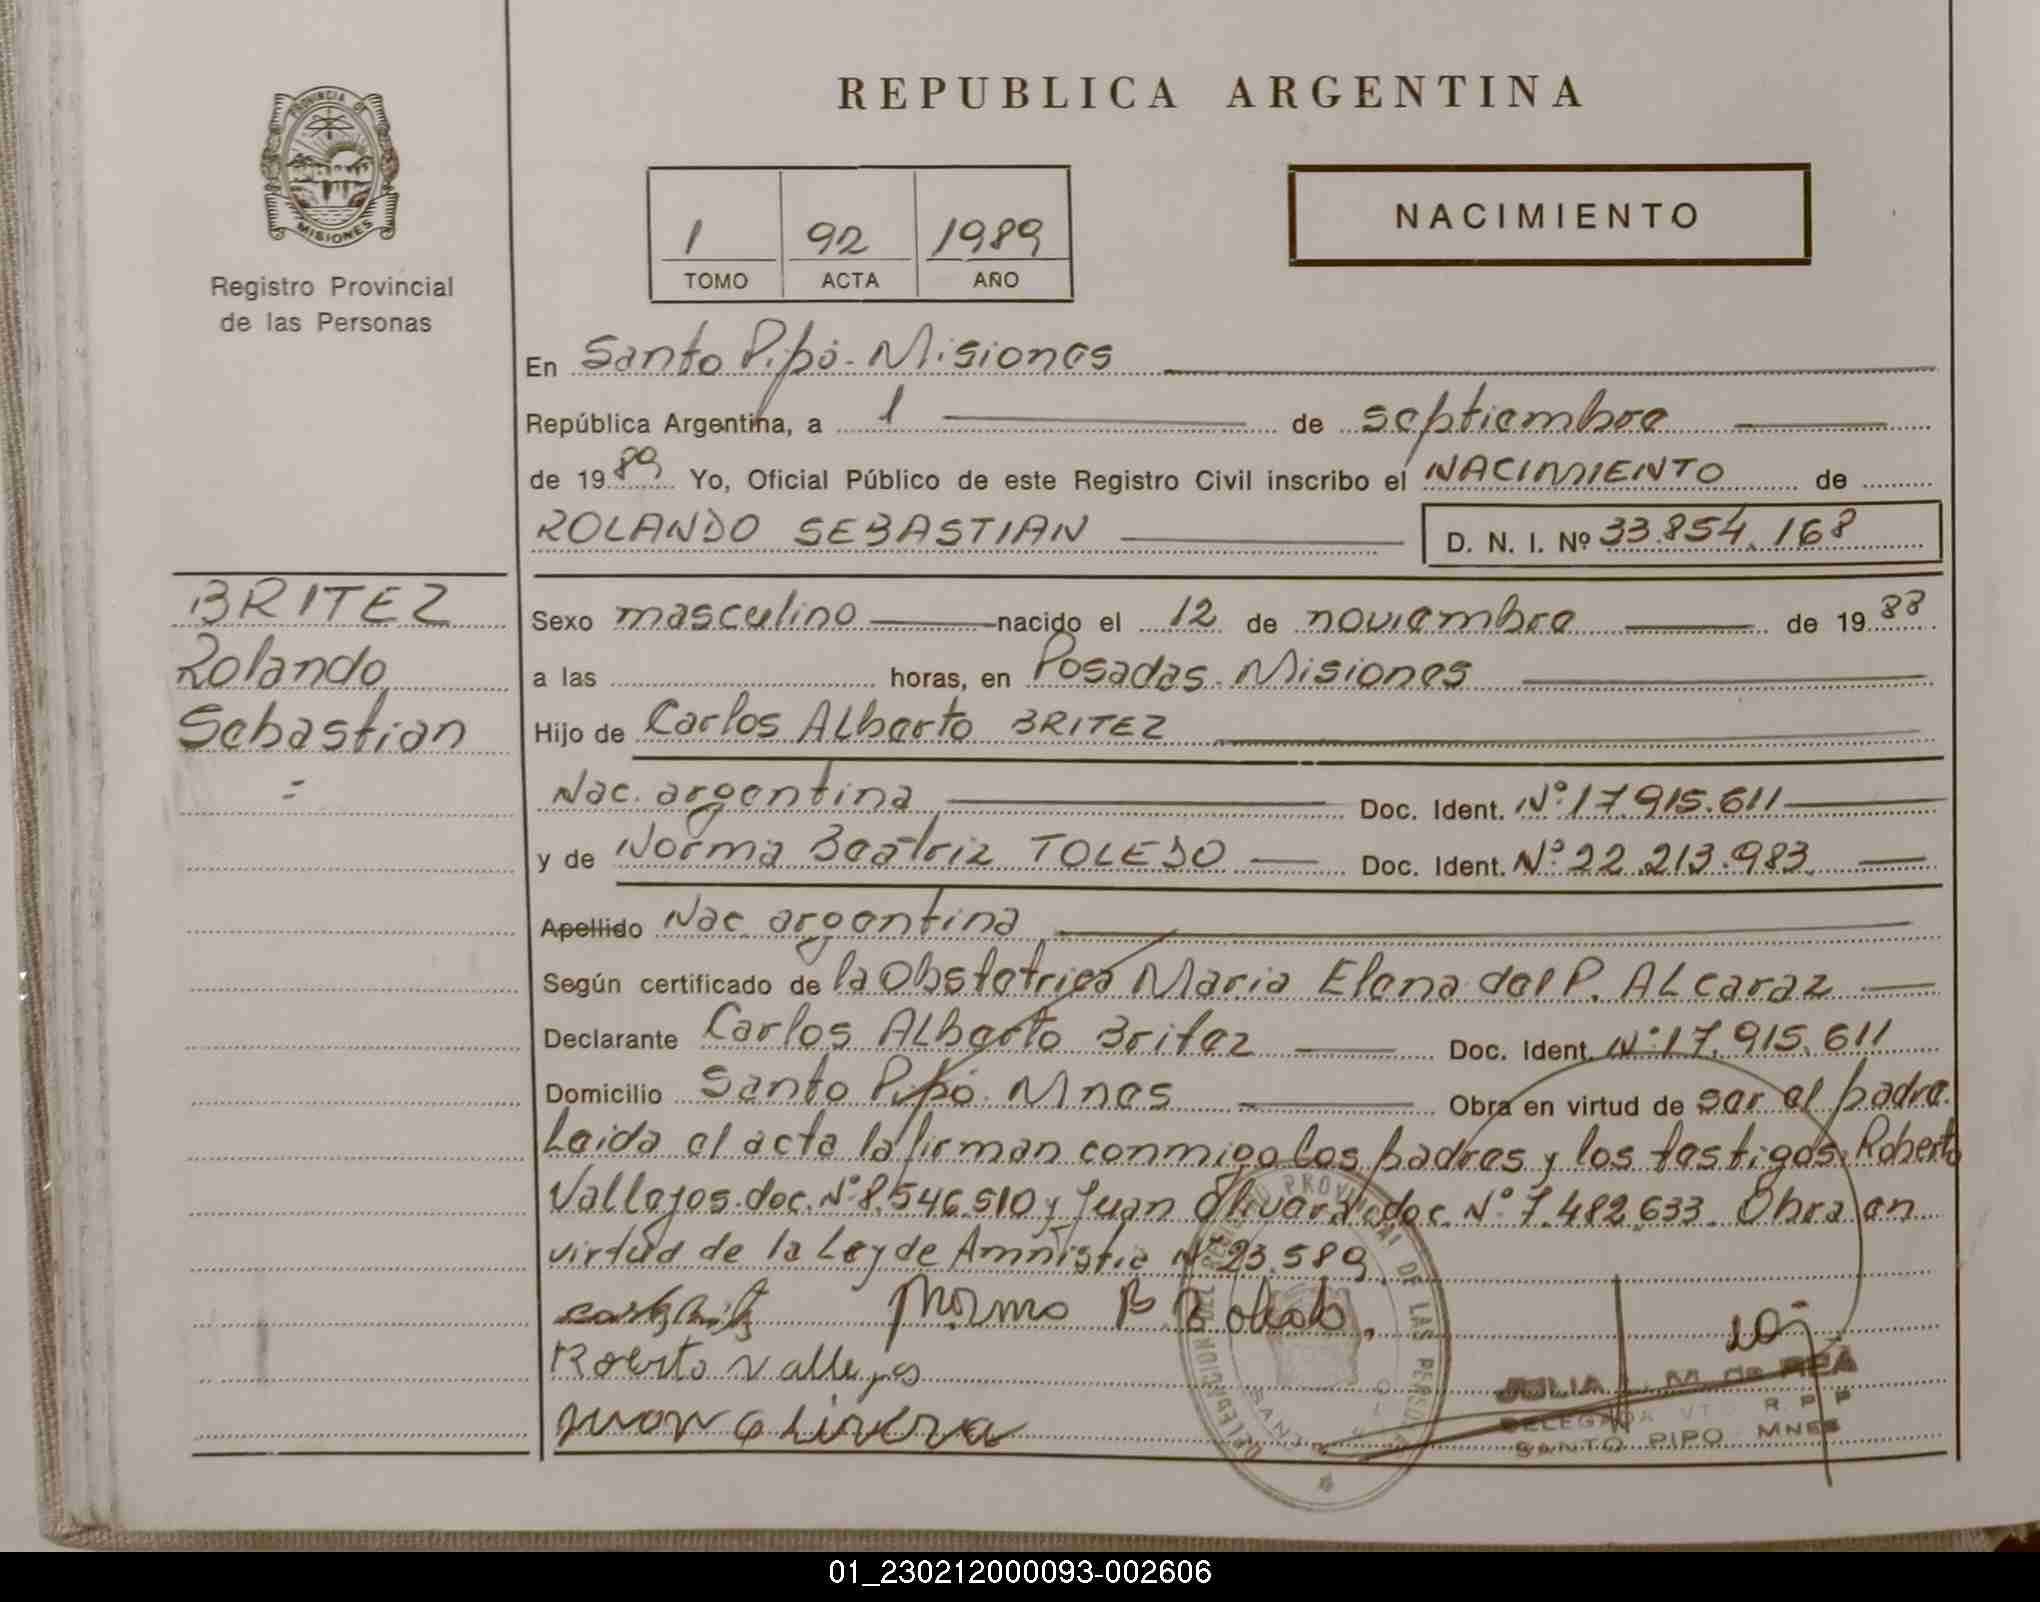 REPUBLICA ARGENTINA
PROVINCIA DE
MISIONES
Registro Provincial
de las Personas
1 92 1989
TOMO ACTA AÑO
NACIMIENTO
En Santo Pipó - Misiones
República Argentina, a 1 de septiembre
de 1989 Yo, Oficial Público de este Registro Civil inscribo el NACIMIENTO de
ROLANDO SEBASTIAN D. N. I. Nº 33.854.168
BRITEZ
Rolando
Sebastian
=
Sexo masculino nacido el 12 de noviembre de 1988
a las horas, en Posadas - Misiones
Hijo de Carlos ALberto BRITEZ
Nac. argentina Doc. Ident. Nº 17.915.611
y de Norma Beatriz TOLEDO Doc. Ident. Nº 22.213.983
Apellido Nac. argentina
Según certificado de la Obstetrica Maria Elena del P. ALcaraz
Declarante Carlos ALberto Britez Doc. Ident. Nº 17.915.611
Domicilio Santo Pipó - Mnes Obra en virtud de ser el padre.
Leida el acta la firman conmigo los padres y los testigos Roberto
Vallejos doc. Nº 8.546.510 y Juan Olivera doc. Nº 7.482.633. Obra en
virtud de la Ley de Amnistia Nº 23.589
Norma B. Toledo
Roberto Vallejos
Juan Olivera
JULIA M. de REA
DELEGADA R P P
SANTO PIPO MNES
DELEGACION DEL REGISTRO PROVINCIAL DE LAS PERSONAS
01_230212000093-002606